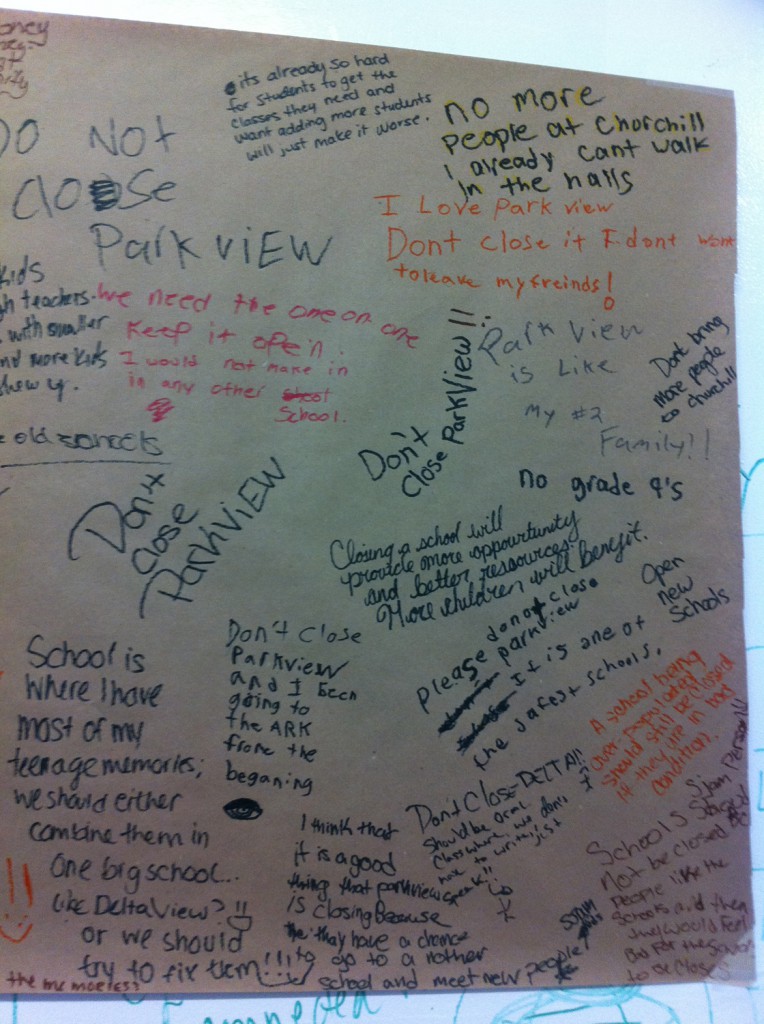 oney
its already so hard
for students to get the
classes they need and
want adding more students
will just make it worse.
no more
people at Chorchill
I already cant walk
In the halls
DO NOt
CloSe
Park vIEW
I Love Park view
Dont close it I dont want
to leave my freinds!
kids
gh teachers.
with smaller
nd more kids
show up.
e old schools
We need the one on one
Keep it open.
I would not make in
in any other
School.
Don't
Close ParkView!!
Park View
is Like
My #2
Family!!
Dont bring
More people
to churchill
no grade 9's
Dont
Close
ParkVIEW
Closing a school will
provide more oppourtunity
and better resources.
More children will benefit.
Please do not close
parkview
It is one of
the safest schools.
Open
new
Schools
School is
Where I have
most of my
teenage memories;
we should either
combine them in
One big school...
like DeltaView?
or we should
try to fix them!!!
Don't Close
Parkview
and I been
going to
the ARK
frome the
beganing
A school being
over populated
should still be closed
if they are in bad
condition.
Don't Close DELTA!!
Should be oral
class where we don't
have to write, just
speak!!
I think that
it is a good
thing that parkview
is closing because
they have a chance
to go to a nother
school and meet new people
Schools Should
Not be closed
People like the
Schools and then
they would Feel
to be Closed
the